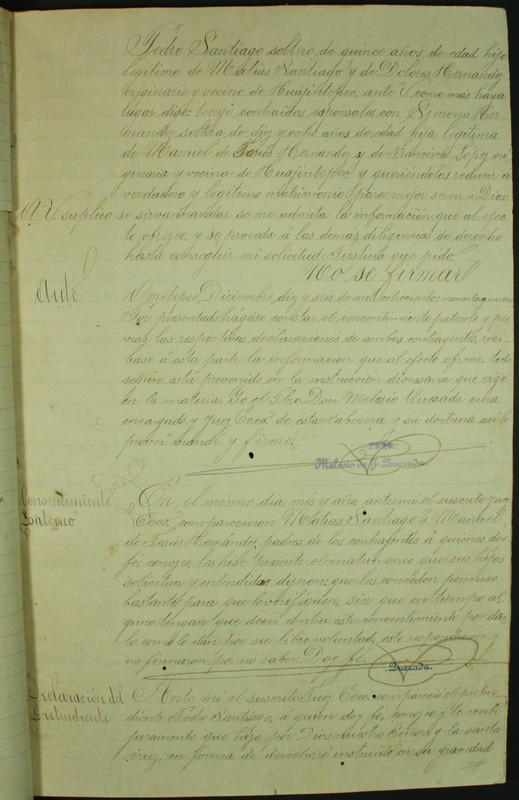 Pedro Santiago soltero, de quince años de edad hijo
legitimo de Matias Santiago y de Dolores Hernandez
originario y vecino de Huajintepec, ante V. como mas haya
lugar dice: tengo contraidos esponsales con Simona Her-
nandez soltera de diez y ocho años de edad hija legitima
de Manuel de Jesus Hernandez y de Francisca Lopez ori
ginaria y vecina de Huajintepec y queriendolos reducir a
verdadero y legitimo matrimonio para mejor servir a Dios:
A V. suplico se sirva mandar se me admita la informacion que al efec
to ofrezco, y se proceda á las demas diligencias de derecho
hasta conseguir mi solicitud. Justicia que pido.
No se firmar
Auto
Ometepec, Diciembre diez y seis de mil ochocientos noventa
Por presentado hágase constar el consentimiento paterno y pre
vias las respectivas declaraciones de ambos contrayentes, reci
base á esta parte la informacion que al efecto ofrece, todo
segun está prevenido en la instruccion diocesana que rige
en la materia. Yo, el Pbro Don Melesio Quesada cura
encargado y Juez Ecco. de esta Cabecera y su doctrina así lo
proveí mandé y firmé.
PBRO.
Melesio de J. Quezada.
Consentimiento
Paterno
En el mismo dia, mes y año, ante mi el suscrito Juez
Ecco. comparecieron Matias Santiago y Manuel
de Jesus Hernández, padres de los contrayentes á quienes doy
fé, conozco, les hise presente el matrimonio que sus hijos
solicitan y entendidos, dijeron: que les conceden permiso
bastante para que lo verifiquen, sin que en tiempo al
guno tengan que decir contra este consentimiento por dar
lo como lo dan por su libre voluntad, esto respondieron y
no firmaron por no saber. Doy fé.
Quezada.
Declaración del
Pretendiente
Ante mi el suscrito Juez Ecco. comparecio el preten-
diente Pedro Santiago, á quien doy fé, conozco y le recibí
juramento que hizo por Dios nuestro Señor y la santa
cruz, en forma de derecho, é instruido en su gravedad